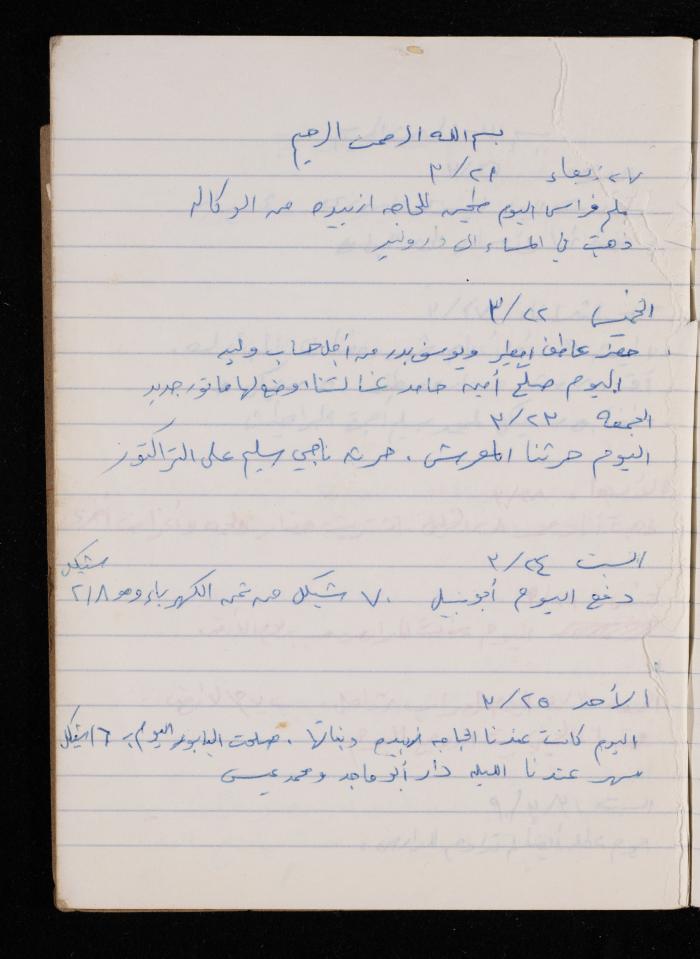 بسم الله الرحمن الرحيم
الاربعاء ٣/٢١
فراس اليوم للحاجه ازبيده من الوكاله
ذهبت في المساء الى دار وليد
الخميس ٣/٢٢
حضر عاطف ويوسف بدر من أجل حساب وليد
اليوم صلح أمين حامد غسالتنا اوضع لها ماتور جديد
الجمعه ٣/٢٣
اليوم حرثنا المعرش . حرثه ناجي سليم على التراكتور
السبت ٣/٢٤
دفع اليوم أبو نبيل ٧٠ شيكل من ثمن الكهرباء وهو ٢١٨ شيكل
الأحد ٣/٢٥
اليوم كانت عندنا الحاجه ازبيده وبناتها . صلحت البابور اليوم بـ ١٦ شيكل
سهر عندنا الليله دار أبو ماجد ومحمد عيسى